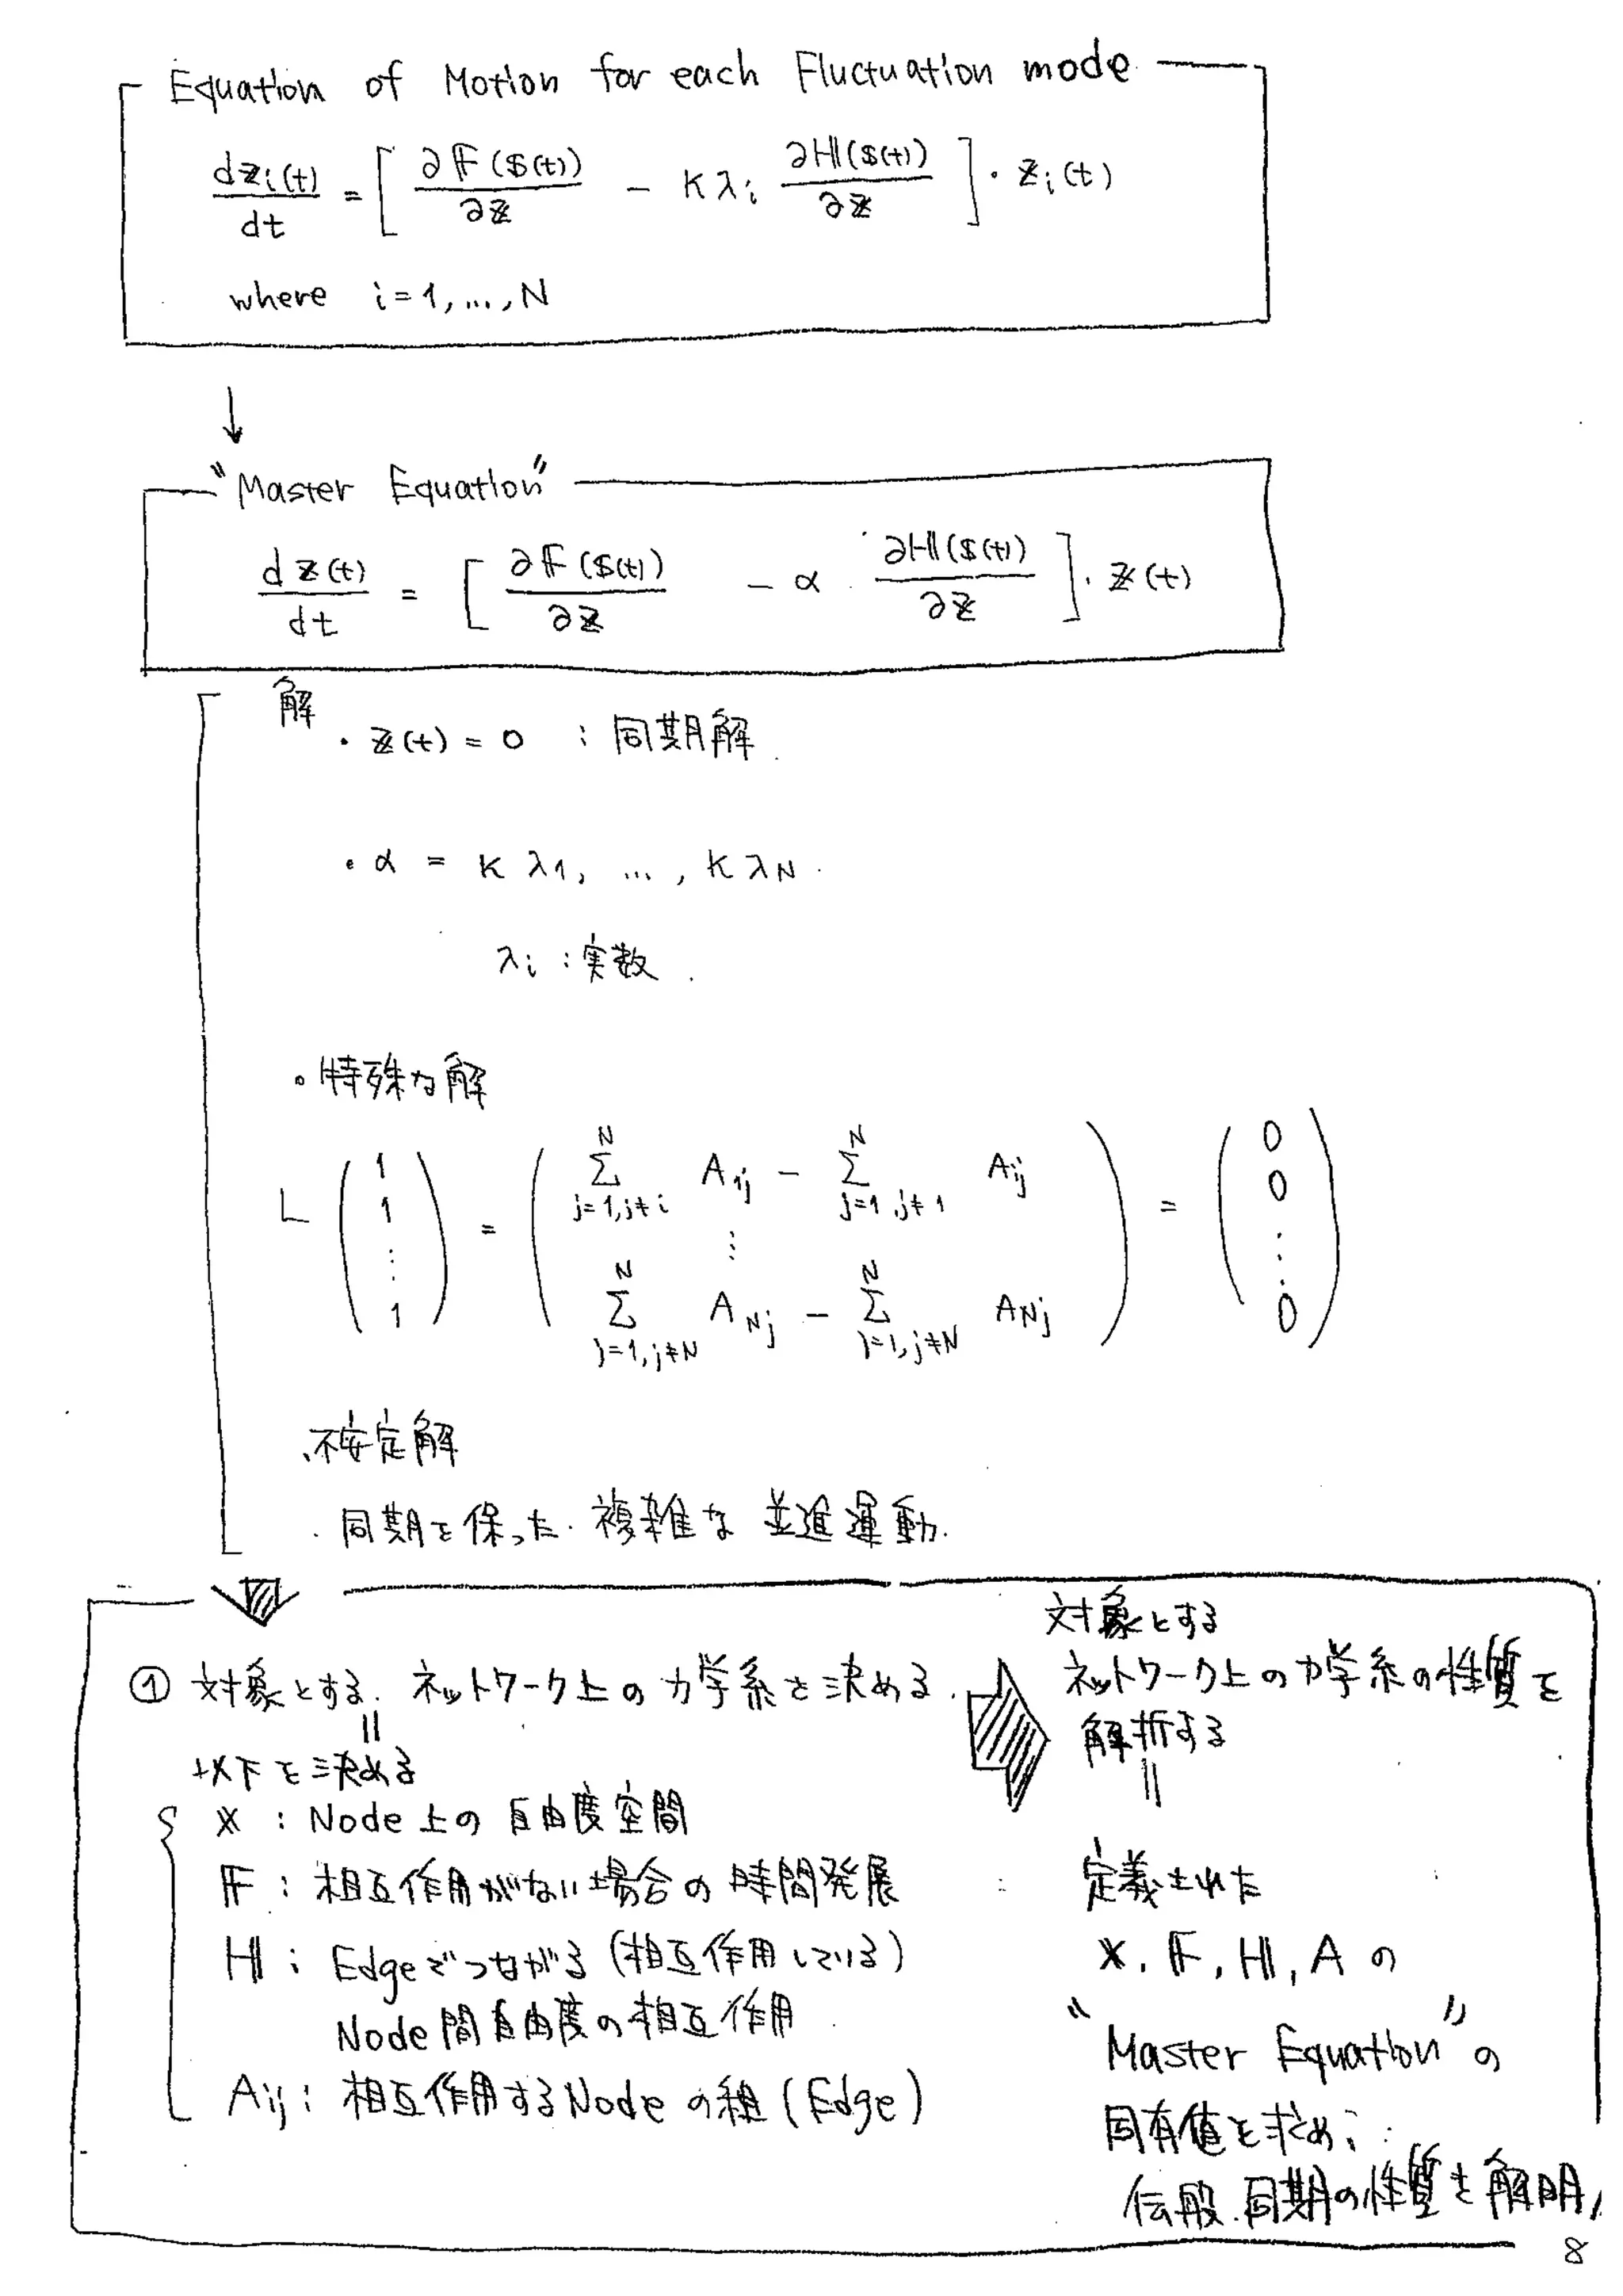 Equation of Motion for each Fluctuation mode
d𝕫i(t)/dt = [ ∂𝔽($(t))/∂𝕫 − Kλi ∂ℍ($(t))/∂𝕫 ]・𝕫i(t)
where i=1, ..., N
↓
"Master Equation"
d𝕫(t)/dt = [ ∂𝔽($(t))/∂𝕫 − α ∂ℍ($(t))/∂𝕫 ]・𝕫(t)
解
・𝕫(t) = 0 : 同期解
・α = Kλ1, ..., KλN
λi : 実数
・特殊な解
L (1 1 ⋮ 1) = ( Σ^N_{j=1,j≠i} A1j − Σ^N_{j=1,j≠1} Aij ⋮ Σ^N_{j=1,j≠N} ANj − Σ^N_{j=1,j≠N} ANj ) = (0 0 ⋮ 0)
・不安定解
・同期を保った複雑な並進運動.
① 対象とする ネットワーク上の力学系を決める.
||
以下を決める
𝕏 : Node上の自由度空間
𝔽 : 相互作用がない場合の時間発展
ℍ : Edgeでつながる(相互作用している)
Node間自由度の相互作用
Aij : 相互作用するNodeの組(Edge)
対象とする
ネットワーク上の力学系の性質を
解析する
||
定義された
𝕏, 𝔽, ℍ, A の
"Master Equation"の
固有値を求め、
伝般.同期の性質を解明
8